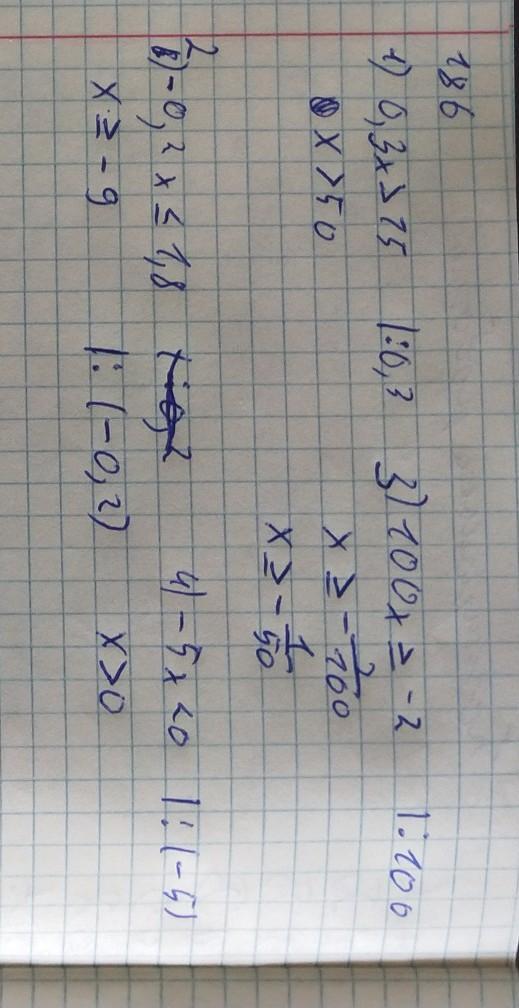 186
1) 0,3x > 15 |:0,3
x > 50
2) -0,2x ≤ 1,8
x ≥ -9 |: (-0,2)
3) 100x ≥ -2 |:100
x ≥ -2/100
x ≥ -1/50
4) -5x < 0 |: (-5)
x > 0